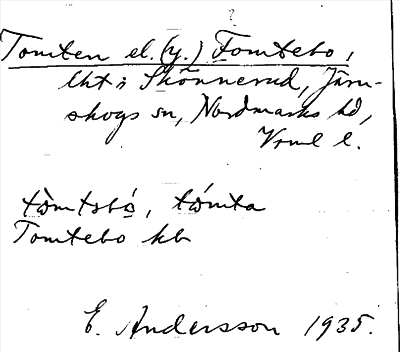 Tomten el. (y.) Tomtebo,
lht i Skönnerud, Järn-
skogs sn, Nordmarks hd,
Vrml l.
tòmtəbó, tómta
Tomtebo kb
E. Andersson 1935.